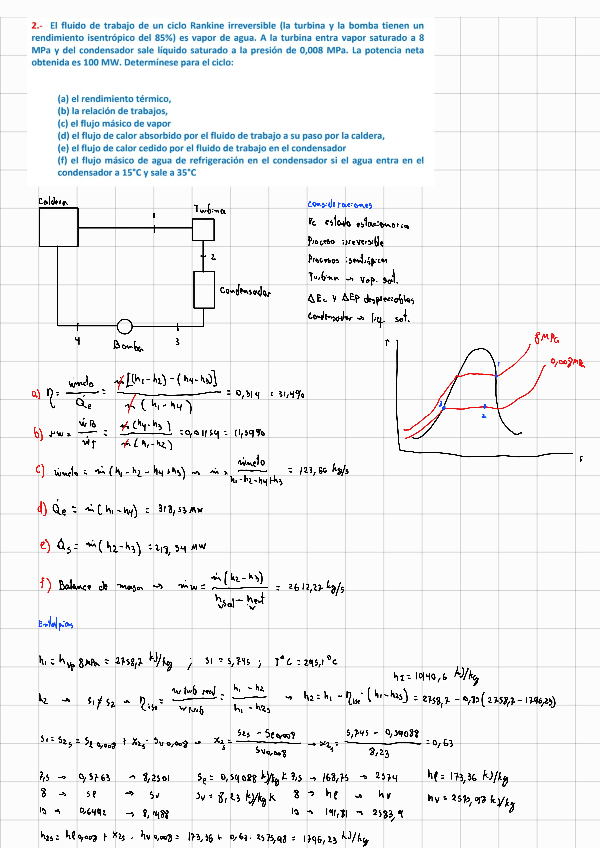 2.- El fluido de trabajo de un ciclo Rankine irreversible (la turbina y la bomba tienen un
rendimiento isentrópico del 85%) es vapor de agua. A la turbina entra vapor saturado a 8
MPa y del condensador sale líquido saturado a la presión de 0,008 MPa. La potencia neta
obtenida es 100 MW. Determínese para el ciclo:
(a) el rendimiento térmico,
(b) la relación de trabajos,
(c) el flujo másico de vapor
(d) el flujo de calor absorbido por el fluido de trabajo a su paso por la caldera,
(e) el flujo de calor cedido por el fluido de trabajo en el condensador
(f) el flujo másico de agua de refrigeración en el condensador si el agua entra en el
condensador a 15°C y sale a 35°C
Caldera
1
Turbina
2
Condensador
4
Bomba
3
Consideraciones
Proceso irreversible
Procesos isentrópicos
Turbina → vap. sat.
ΔEc y ΔEP despreciables
Condensador → liq. sat.
T
8 MPa
0,008 MPa
1
3
2
s
a) η = wneto / Qe = ṁ[(h1-h2)-(h4-h3)] / ṁ(h1-h4) = 0,314 = 31,4%
b) rw = ẇB / ẇT = ṁ(h4-h3) / ṁ(h1-h2) = 0,01159
c) ẇneto = ṁ(h1-h2-h4+h3) → ṁ = ẇneto / h1-h2-h4+h3 = 123,66 kg/s
d) Q̇e = ṁ(h1-h4) = 318,53 MW
e) Q̇s = ṁ(h2-h3) = 218,54 MW
f) Balance de masa → ṁw = ṁ(h2-h3) / hsal - hent = 2612,27 kg/s
Entalpias
h1 = hvp 8MPa = 2758,7 kJ/kg ; s1 = 5,745 ; T°C = 295,1°C
h2 → s1 ≠ s2 → ηiso = w turb real / w turb = h1-h2 / h1-h2s → h2 = h1 - ηise · (h1-h2s) = 2758,7 - 0,85(2758,7 - 1796,23)
s1 = s2s = sl 0,008 + x2s · sv 0,008 → x2s = s2s - sl 0,008 / sv 0,008 → x2s = 5,745 - 0,59088 / 8,23 = 0,63
7,5 → 0,5763 → 8,2501 sl = 0,59088 kJ/kg K 7,5 → 168,75 → 2574 hl = 173,36 kJ/kg
8 → sl → sv sv = 8,23 kJ/kg K 8 → hl → hv
10 → 0,6492 → 8,1488 10 → 191,81 → 2583,9
h2s = hl 0,008 + x2s · hv 0,008 = 173,36 + 0,63 · 2575,98 = 1796,23 kJ/kg